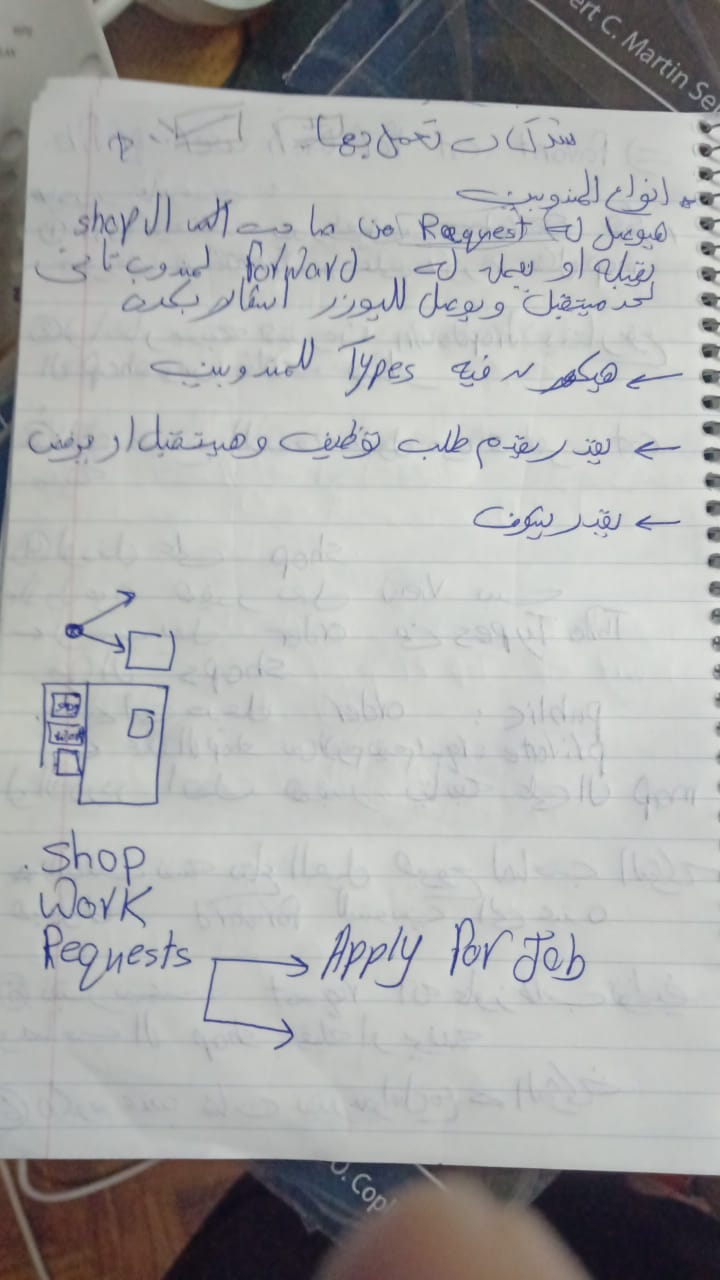 ert C. Martin Se
شركات تعمل بيها
* انواع المندوبين
هيوصل له Request من صاحب الـ shop
يقبله او يعمله له forward لمندوب تاني
لحد ميتقبل ويوصل لليوزر اشعار بكده
← هيكون فيه Types للمندوبين
← يقدر يقدم طلب توظيف وهيتقبل او يرفض
← يقدر
Shop
Work
Requests → Apply For Job
O. Copl